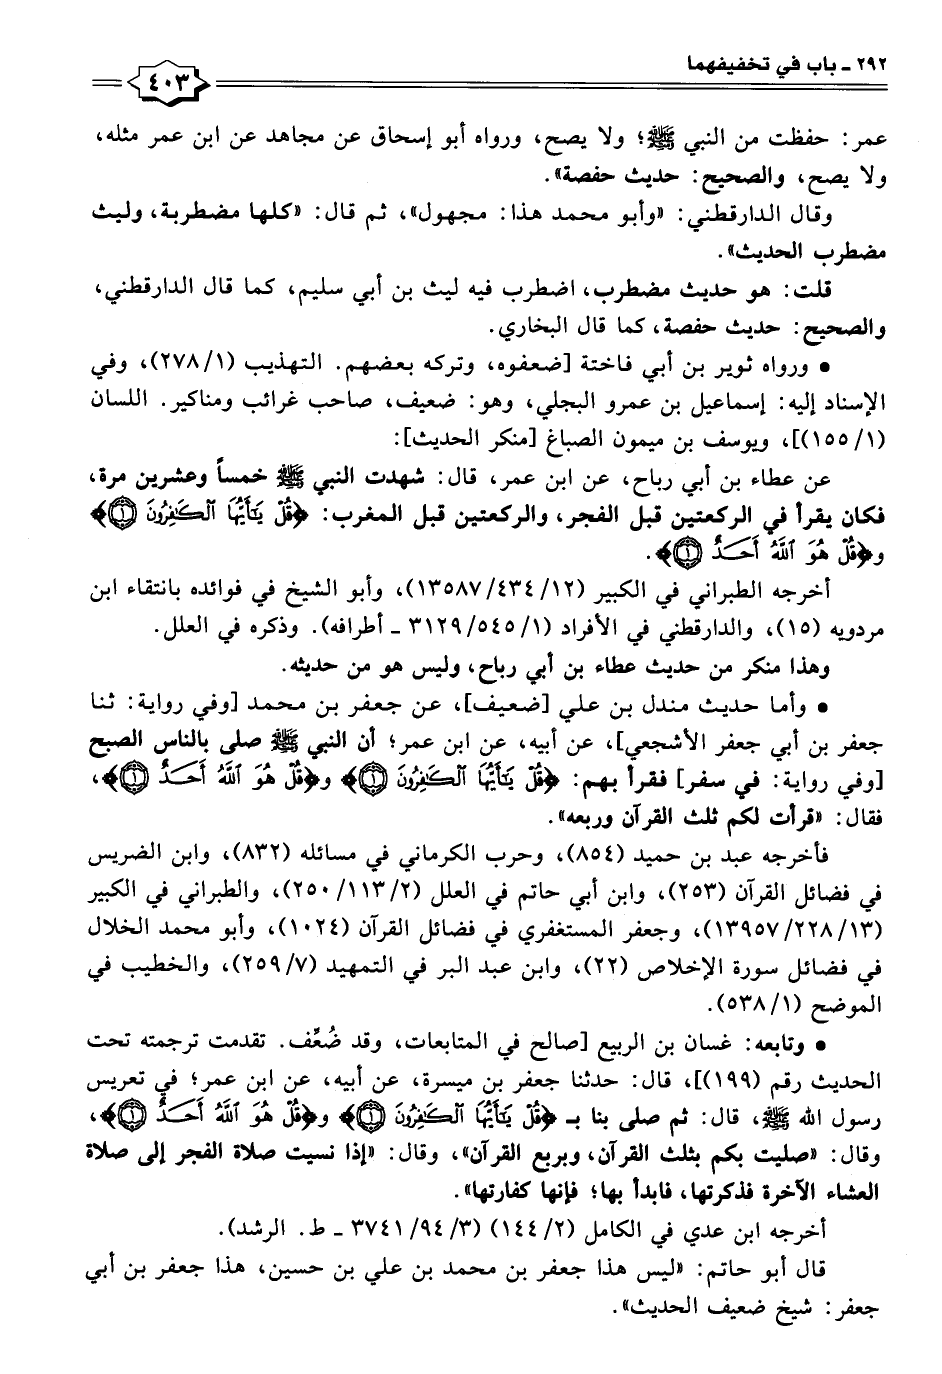 ٢٩٢ ـ باب في تخفيفهما
٤٠٣
عمر: حفظت من النبي ﷺ؛ ولا يصح، ورواه أبو إسحاق عن مجاهد عن ابن عمر مثله،
ولا يصح، والصحيح: حديث حفصة».
وقال الدارقطني: «وأبو محمد هذا: مجهول»، ثم قال: «كلها مضطربة، وليث
مضطرب الحديث».
قلت: هو حديث مضطرب، اضطرب فيه ليث بن أبي سليم، كما قال الدارقطني،
والصحيح: حديث حفصة، كما قال البخاري.
• ورواه ثوير بن أبي فاختة [ضعفوه، وتركه بعضهم. التهذيب (٢٧٨/١)، وفي
الإسناد إليه: إسماعيل بن عمرو البجلي، وهو: ضعيف، صاحب غرائب ومناكير. اللسان
(١٥٥/١)]، ويوسف بن ميمون الصباغ [منكر الحديث]:
عن عطاء بن أبي رباح، عن ابن عمر، قال: شهدت النبي ﷺ خمساً وعشرين مرة،
فكان يقرأ في الركعتين قبل الفجر، والركعتين قبل المغرب: ﴿قُلْ يَٰٓأَيُّهَا ٱلْكَٰفِرُونَ ۝١﴾
و﴿قُلْ هُوَ ٱللَّهُ أَحَدٌ ۝١﴾.
أخرجه الطبراني في الكبير (١٣٥٨٧/٤٣٤/١٢)، وأبو الشيخ في فوائده بانتقاء ابن
مردويه (١٥)، والدارقطني في الأفراد (٣١٢٩/٥٤٥/١ ـ أطرافه). وذكره في العلل.
وهذا منكر من حديث عطاء بن أبي رباح، وليس هو من حديثه.
• وأما حديث مندل بن علي [ضعيف]، عن جعفر بن محمد [وفي رواية: ثنا
جعفر بن أبي جعفر الأشجعي]، عن أبيه، عن ابن عمر؛ أن النبي ﷺ صلى بالناس الصبح
[وفي رواية: في سفر] فقرأ بهم: ﴿قُلْ يَٰٓأَيُّهَا ٱلْكَٰفِرُونَ ۝١﴾ و﴿قُلْ هُوَ ٱللَّهُ أَحَدٌ ۝١﴾،
فقال: «قرأت لكم ثلث القرآن وربعه».
فأخرجه عبد بن حميد (٨٥٤)، وحرب الكرماني في مسائله (٨٣٢)، وابن الضريس
في فضائل القرآن (٢٥٣)، وابن أبي حاتم في العلل (٢٥٠/١١٣/٢)، والطبراني في الكبير
(١٣٩٥٧/٢٢٨/١٣)، وجعفر المستغفري في فضائل القرآن (١٠٢٤)، وأبو محمد الخلال
في فضائل سورة الإخلاص (٢٢)، وابن عبد البر في التمهيد (٢٥٩/٧)، والخطيب في
الموضح (٥٣٨/١).
• وتابعه: غسان بن الربيع [صالح في المتابعات، وقد ضُعِّف. تقدمت ترجمته تحت
الحديث رقم (١٩٩)]، قال: حدثنا جعفر بن ميسرة، عن أبيه، عن ابن عمر؛ في تعريس
رسول الله ﷺ، قال: ثم صلى بنا بـ ﴿قُلْ يَٰٓأَيُّهَا ٱلْكَٰفِرُونَ ۝١﴾ و﴿قُلْ هُوَ ٱللَّهُ أَحَدٌ ۝١﴾،
وقال: «صليت بكم بثلث القرآن، وبربع القرآن»، وقال: «إذا نسيت صلاة الفجر إلى صلاة
العشاء الآخرة فذكرتها، فابدأ بها؛ فإنها كفارتها».
أخرجه ابن عدي في الكامل (١٤٤/٢) (٣٧٤١/٩٤/٣ ـ ط. الرشد).
قال أبو حاتم: «ليس هذا جعفر بن محمد بن علي بن حسين، هذا جعفر بن أبي
جعفر: شيخ ضعيف الحديث».